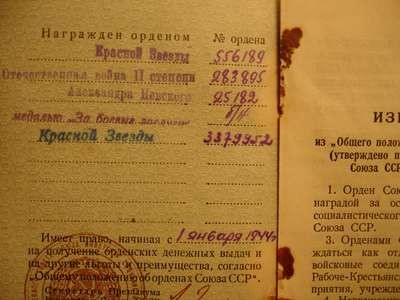 Награжден орденом № ордена
Красной Звезды 556189
Отечественная война II степени 283895
Александра Невского 25182
медалью „За боевые
Красной Звезды 3379952
Имеет право, начиная с 1 января 1944 г.
на получение орденских денежных выдач и
на другие льготы и преимущества, согласно
„Общему положению об орденах СССР“.
Секретарь Президиума
ИЗ
из „Общего
(утверждено
Союза ССР
1. Орден Сою
наградой за
социалистического
Союза ССР.
3. Орденами
ждаться как
войсковые
Рабоче-Крестьян
приятия,